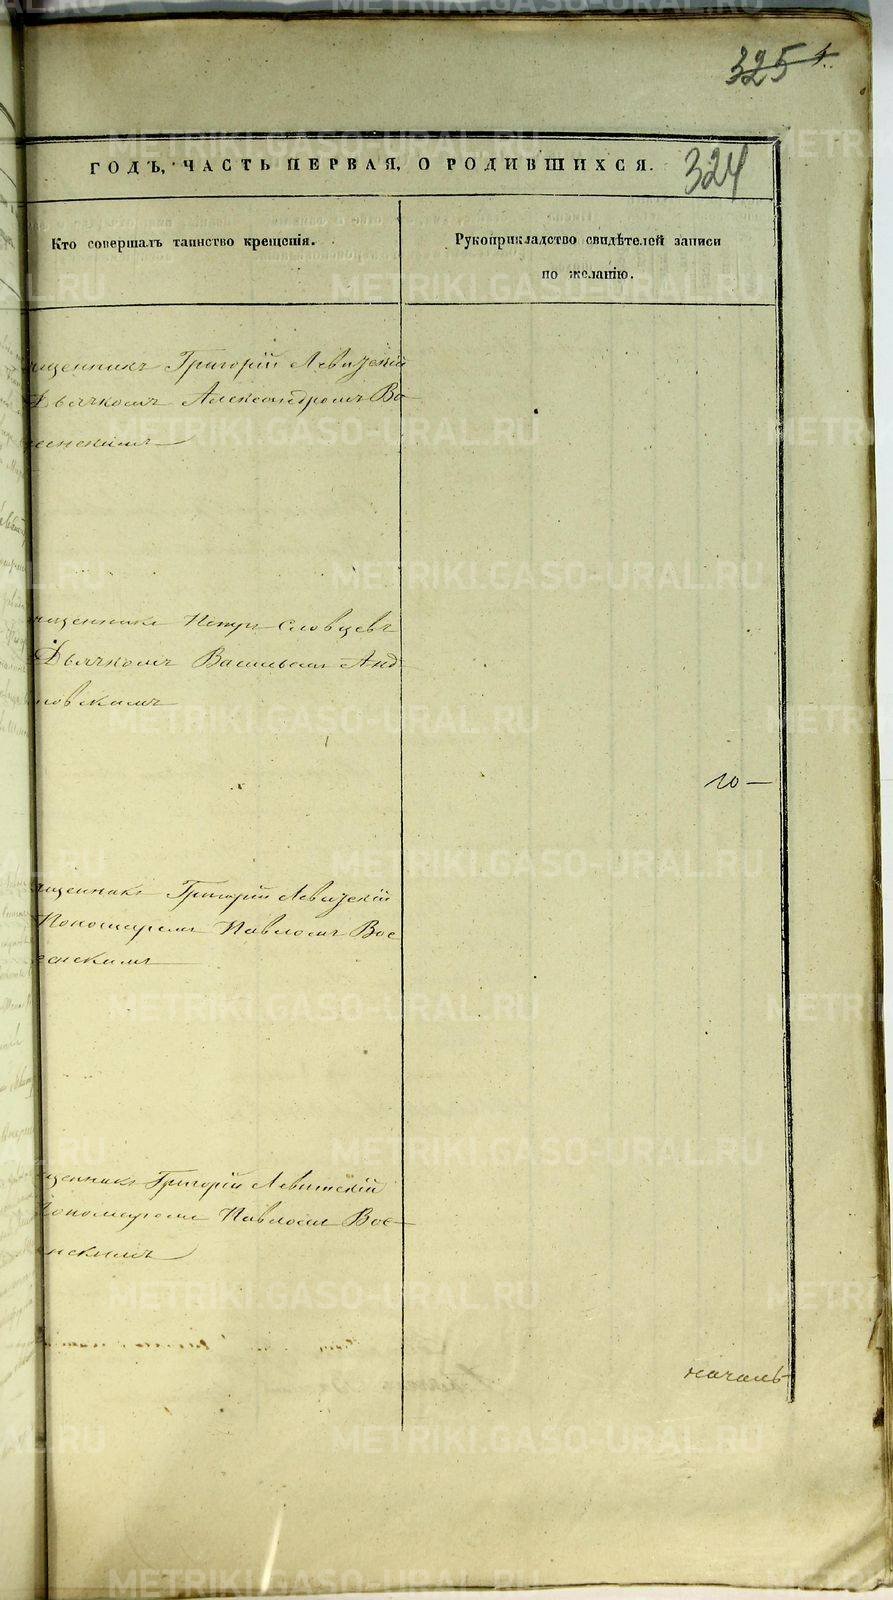 325
ГОДЪ, ЧАСТЬ ПЕРВАЯ, О РОДИВШИХСЯ. 324
Кто совершалъ таинство крещенія.
Рукоприкладство свидѣтелей записи
по желанію.
щенникъ Григорій Левицкій
Дьячкомъ Александромъ Во-
сенскимъ
щенникъ Петръ Словцевъ
Дьячкомъ Васильемъ Анд
новскимъ
10 —
щенникъ Григорій Левицкій
Пономаремъ Павломъ Вос
сенскимъ
щенникъ Григорій Левитскій
Пономаремъ Павломъ Вос-
нскимъ
началъ
METRIKI.GASO-URAL.RU